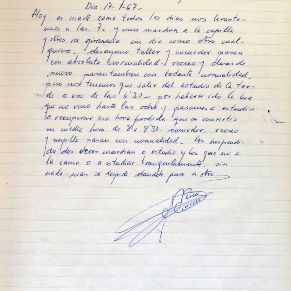 Dia 17-1-67-
Hoy es martes como todos los dias nos levanta-
mos a las 7 y unos marchan a la capilla
y otros a gimnasia un dia como otro cual-
quiera, desayuno taller y comedor pasan
con absoluta normalidad, recreo y clases de
nuevo pasan tambien con bastante normalidad,
pero nos tenemos que salir del estudio de la tar-
de a eso de las 6'30- por haberse ido la luz
que no vino hasta las ocho y pasamos a estudio
a recuperar esa hora perdida que se convirtio
en media hora de 8 a 8'30- comedor, recreo
y capilla pasan con normalidad.
do dos veces marchan a estudio y los que no a
la cama o a estudiar tranquilamente, sin
nada mas se despide dando paso a otro